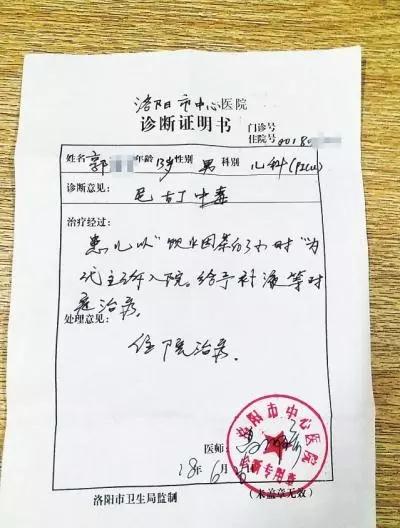 洛阳市中心医院
诊断证明书
门诊号
住院号 20180
姓名 郭 年龄 13岁 性别 男 科别 儿科(PICU)
诊断意见：
尼古丁中毒
治疗经过：
患儿以"饮业因茶约3小时"为
代主诉入院。给予补液等对
症治疗。
处理意见：
住院治疗。
医师：
18年6月
洛阳市卫生局监制
(未盖章无效)
洛阳市中心医院
诊断专用章